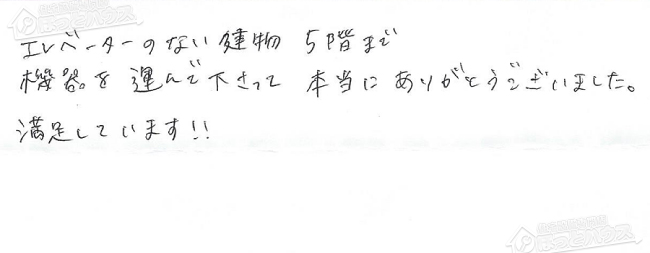 エレベーターのない建物 5階まで
機器を運んで下さって 本当にありがとうございました。
満足しています!!